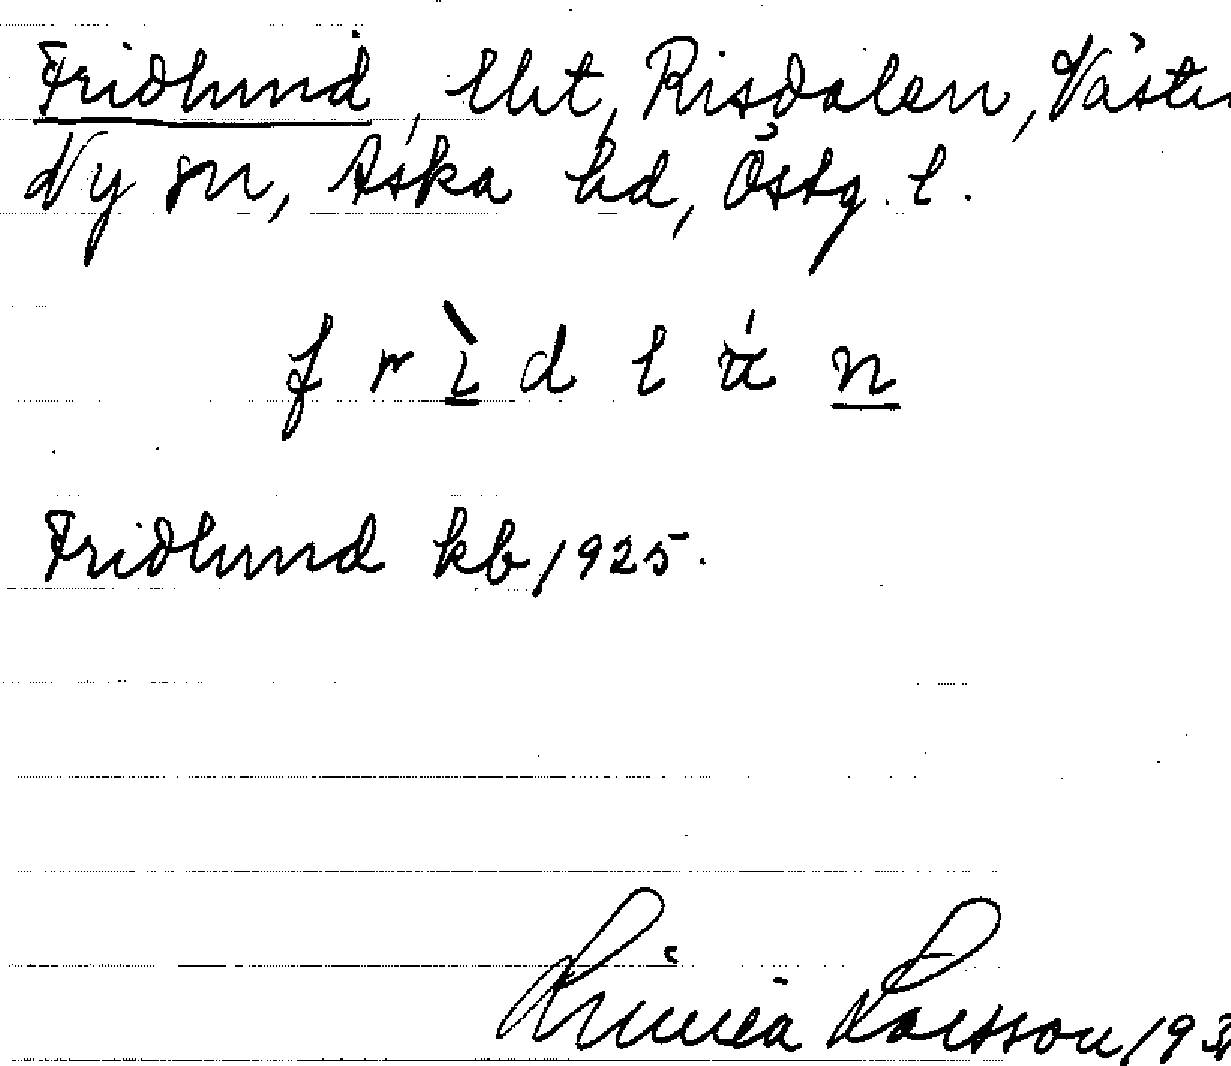 Fridlund, lht, Risdalen, Västra
Ny sn, Aska hd, Östg. l.
f r ì d l ú n
Fridlund kb 1925.
Linnéa Larsson 193